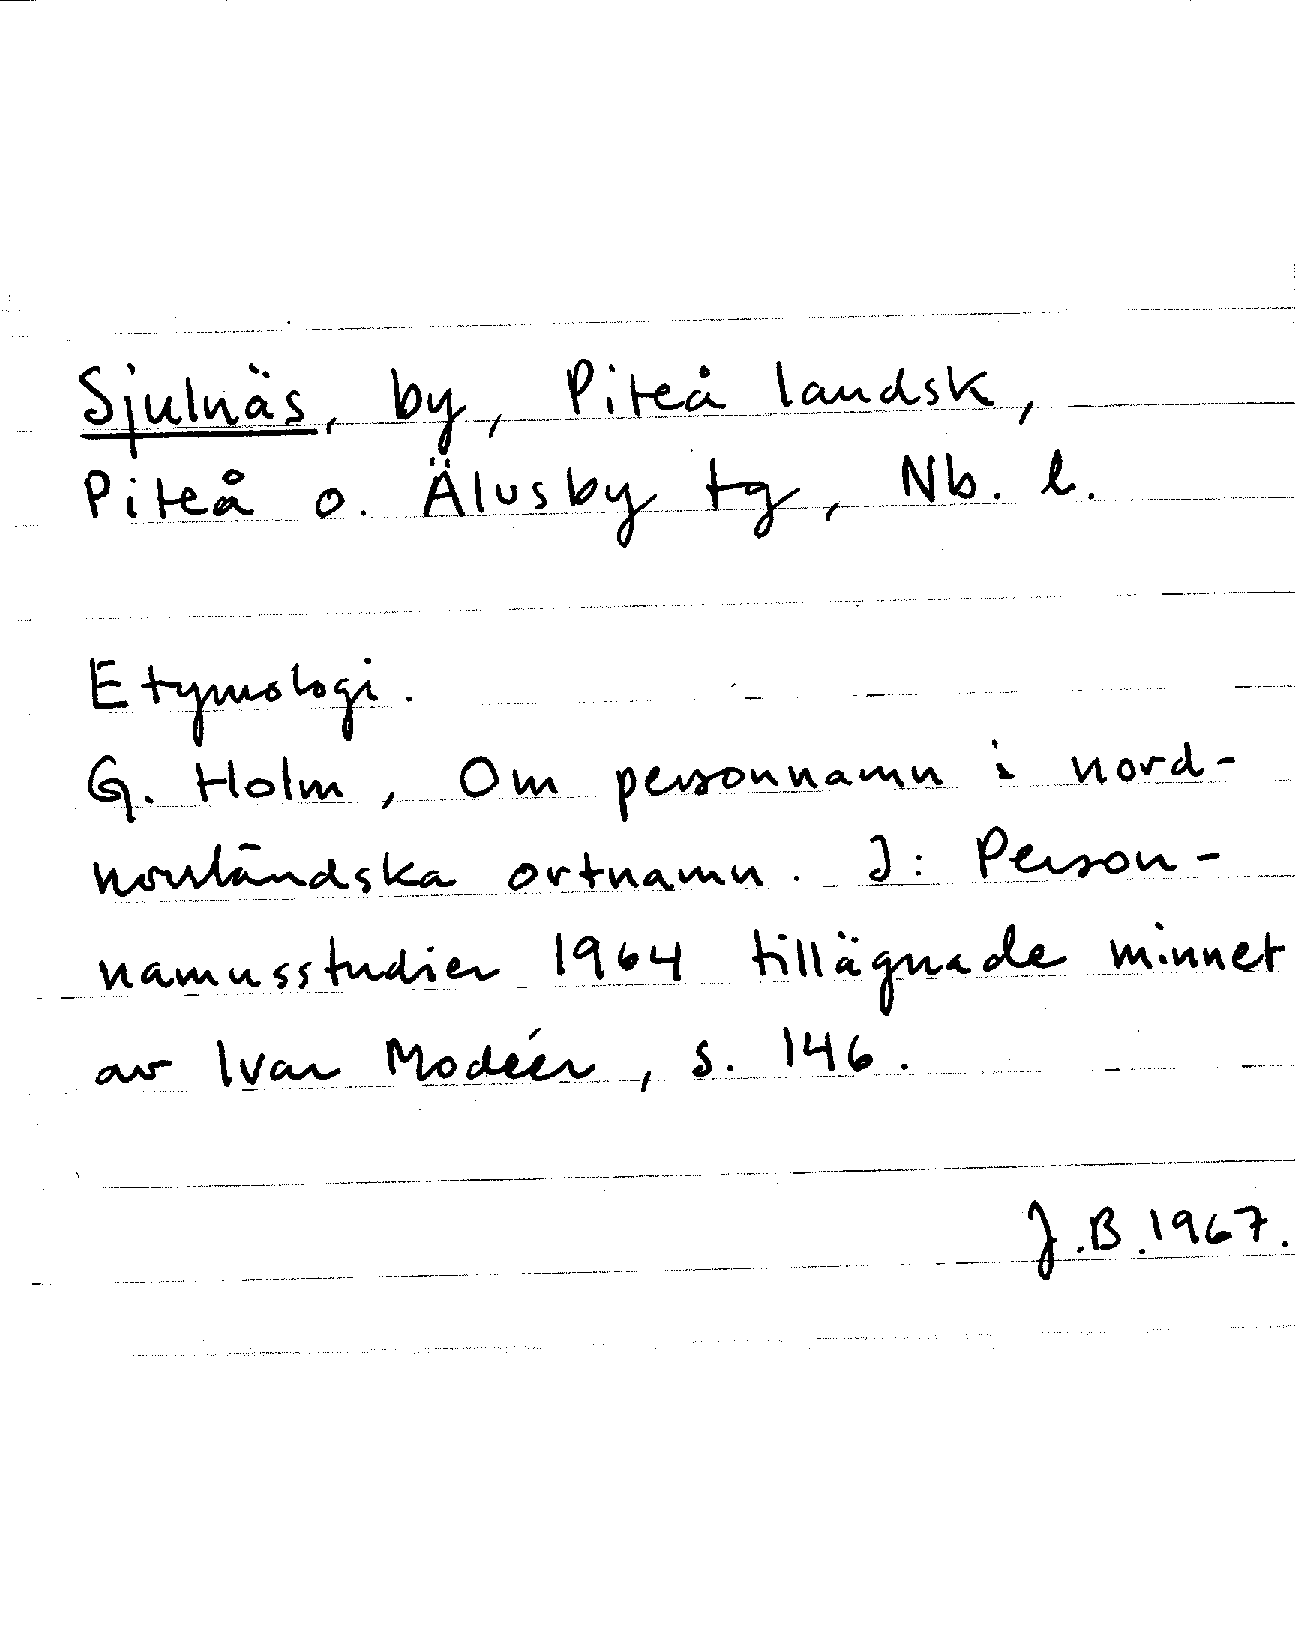 Sjulnäs, by, Piteå landsk,
Piteå o. Älvsby tg, Nb. l.
Etymologi.
G. Holm, Om personnamn i nord-
norrländska ortnamn. I: Person-
namnsstudier 1964 tillägnade minnet
av Ivar Modéer, s. 146.
J.B.1967.